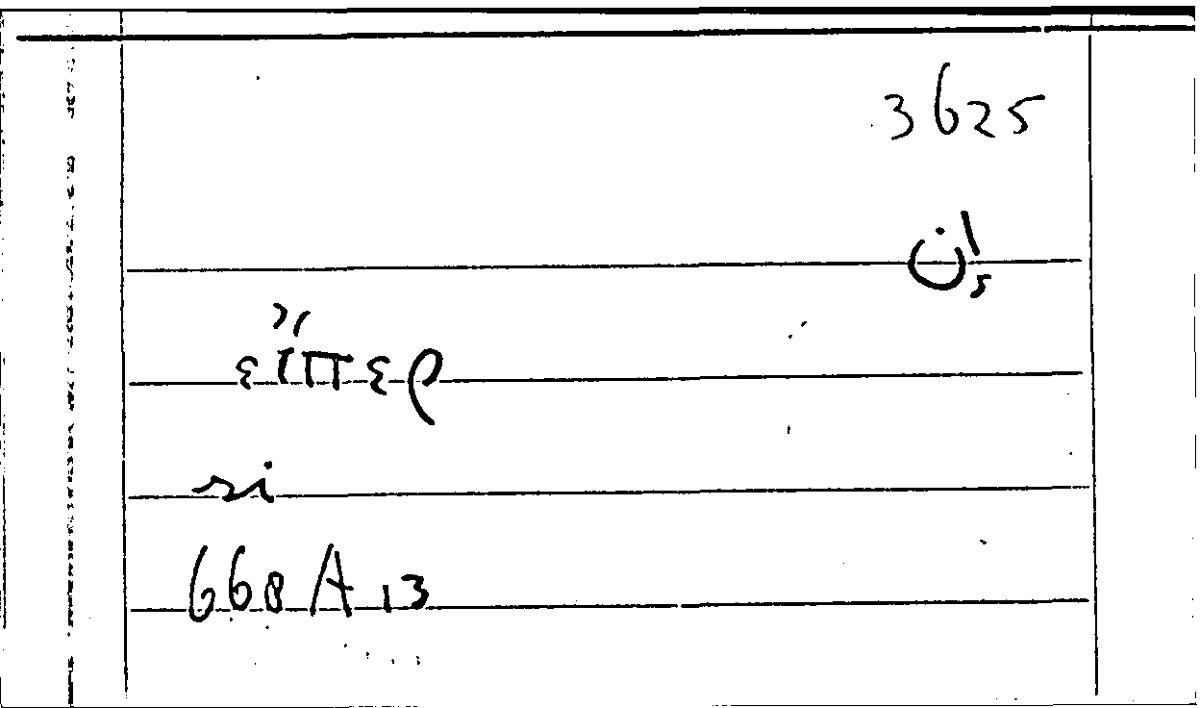 3625
إن
εἴπερ
si
668 A 13